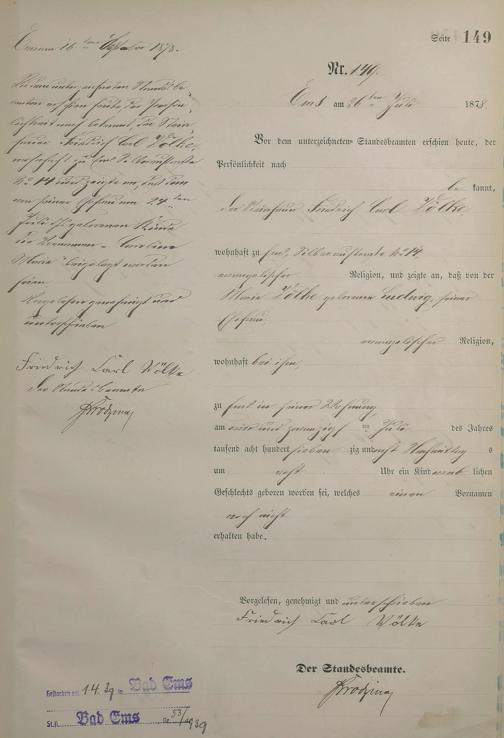 Seite 149
Nr. 149.
Ems am 26ten Juli 1878.
Vor dem unterzeichneten Standesbeamten erschien heute, der
Persönlichkeit nach
be kannt,
der Friedrich Carl Völke
wohnhaft zu Ems, 14
evangelischer Religion, und zeigte an, daß von der
Marie Völke geborenen Ludwig, seiner
Ehefrau
evangelischer Religion,
wohnhaft bei ihm,
zu Ems in seiner Wohnung
am vier und zwanzigsten Juli des Jahres
tausend acht hundert sieben zig und acht Nachmittags
um acht Uhr ein Kind weib lichen
Geschlechts geboren worden sei, welches einen Vornamen
noch nicht
erhalten habe.
Vorgelesen, genehmigt und unterschrieben
Friedrich Carl Völke
Der Standesbeamte.
16 ten 1878.
Friedrich Carl Völke,
wohnhaft zu Ems
No 14 und zeigte an, daß dem
von seiner Ehefrau am 24 ten
Juli geborenen Kinde
die Vornamen Caroline
Marie beigelegt worden
seien.
Vorgelesen genehmigt und
unterschrieben
Friedrich Carl Völke
Der Standesbeamte
Gestorben am 1.4.39 in Bad Ems
St.A. Bad Ems Nr. 53/1939